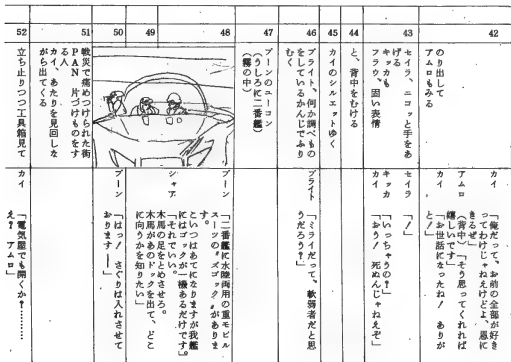 42
のり出して
アムロもみる
カイ
「俺だって、お前の全部が好き
ってわけじゃねえけどよ、恩に
きるぜ」
アムロ
(背中)「そう思ってくれれば
嬉しいです」
カイ
「お世話になったね! ありが
と!」
43
セイラ、ニコッと手をあ
げる
キッカも
フラウ、固い表情
セイラ
「!」
キッカ
「いっちゃうの?」
カイ
「おう! 死ぬんじゃねえぞ」
44
と、背中をむける
45
カイのシルエットゆく
46
ブライト、何か調べもの
をしているかんじでふり
むく
ブライト
「ミライだって、軟弱者だと思
うだろう?」
47
ブーンのユーコン
(うしろに二番艦)
(霧の中)
48
ブーン
「二番艦に水陸両用の重モビル
スーツの〝ズゴック〟がありま
す。
こいつはあてになりますが我艦
にはゴックが一機あるだけです」
49
シャア
「それでいい。
木馬の足をとめさせろ。
木馬があのドックを出て、どこ
に向うかを知りたい」
50
ブーン
「はっ! さぐりは入れさせて
おります——」
51
戦災で痛めつけられた街
PAN 片づけものをす
る人
カイ、あたりを見回しな
がら出てくる
52
立ち止りつつ工具箱見て
カイ
「電気屋でも開くか?………
え? アムロ」